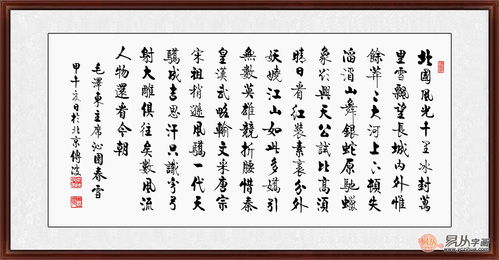 北國風光千里冰封萬
里雪飄望長城內外惟
餘莽々大河上下頓失
滔滔山舞銀蛇原馳蠟
象欲與天公試比高須
晴日看紅裝素裹分外
妖嬈江山如此多嬌引
無數英雄競折腰惜秦
皇漢武略輸文采唐宗
宋祖稍遜風騷一代天
驕成吉思汗只識彎弓
射大雕俱往矣數風流
人物還看今朝
毛澤東主席沁園春雪
甲午夏日於北京傅波
易从字画
www.yczihua.com